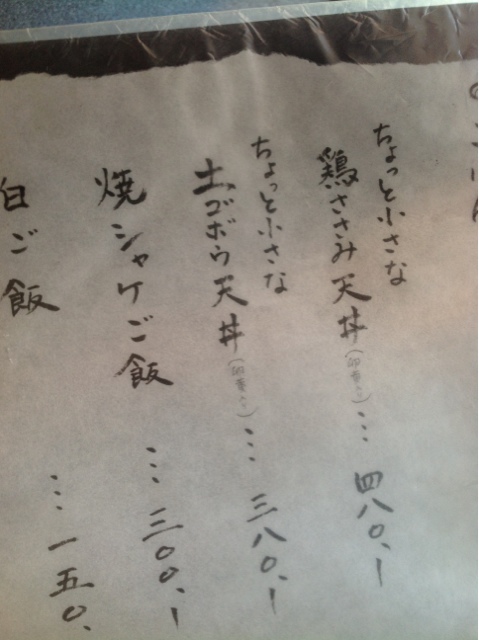 ちょっと小さな
鶏ささみ天丼(卵黄入り)… 四八〇.ー
ちょっと小さな
土ゴボウ天丼(卵黄入り)… 三八〇.ー
焼シャケご飯 … 三〇〇.ー
白ご飯 … 一五〇.